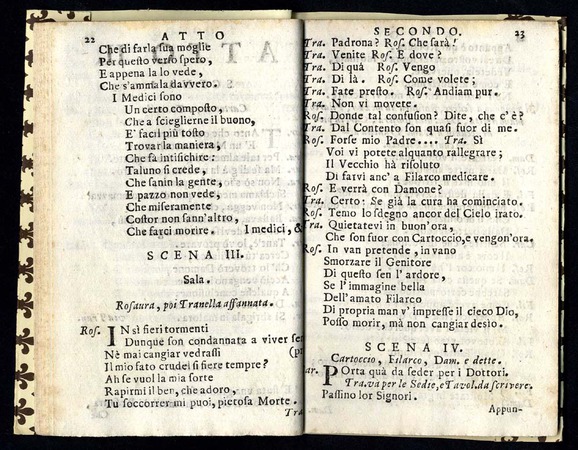 22 ATTO
Che di farla sua moglie
Per questo verso spero,
E appena la lo vede,
Che s'ammala davvero.
I Medici sono
Un certo composto,
Che a scieglierne il buono,
E' facil più tosto
Trovar la maniera,
Che fà intisichire:
Taluno si crede,
Che sanin la gente,
E pazzo non vede,
Che miseramente
Costor non sann'altro,
Che farci morire. I medici, &
SCENA III.
Sala.
Rosaura, poi Tranella affannata.
Ros. IN sì fieri tormenti
Dunque son condannata a viver sem
Nè mai cangiar vedrassi (pr
Il mio fato crudel sì fiere tempre?
Ah se vuol la mia sorte
Rapirmi il ben, che adoro,
Tu soccorrer mi puoi, pietosa Morte.
Tra
SECONDO. 23
Tra. Padrona? Ros. Che sarà!
Tra. Venite Ros. E dove?
Tra. Di quà Ros. Vengo
Tra. Di là. Ros. Come volete;
Tra. Fate presto. Ros. Andiam pur.
Tra. Non vi movete.
Ros. Donde tal confusion? Dite, che c'è?
Tra. Dal Contento son quasi fuor di me.
Ros. Forse mio Padre.... Tra. Sì
Voi vi potete alquanto rallegrare;
Il Vecchio hà risoluto
Di farvi anc' a Filarco medicare.
Ros. E verrà con Damone?
Tra. Certo: Se già la cura ha cominciato.
Ros. Temo lo sdegno ancor del Cielo irato.
Tra. Quietatevi in buon'ora,
Che son fuor con Cartoccio, e vengon'ora.
Ros. In van pretende, in vano
Smorzare il Genitore
Di questo sen l' ardore,
Se l'immagine bella
Dell'amato Filarco
Di propria man v' impresse il cieco Dio,
Posso morir, mà non cangiar desio.
SCENA IV.
Cartoccio, Filarco, Dam. e dette.
ar. POrta quà da seder per i Dottori.
Tra. va per le Sedie, e Tavol. da scrivere.
Passino lor Signori.
Appun-